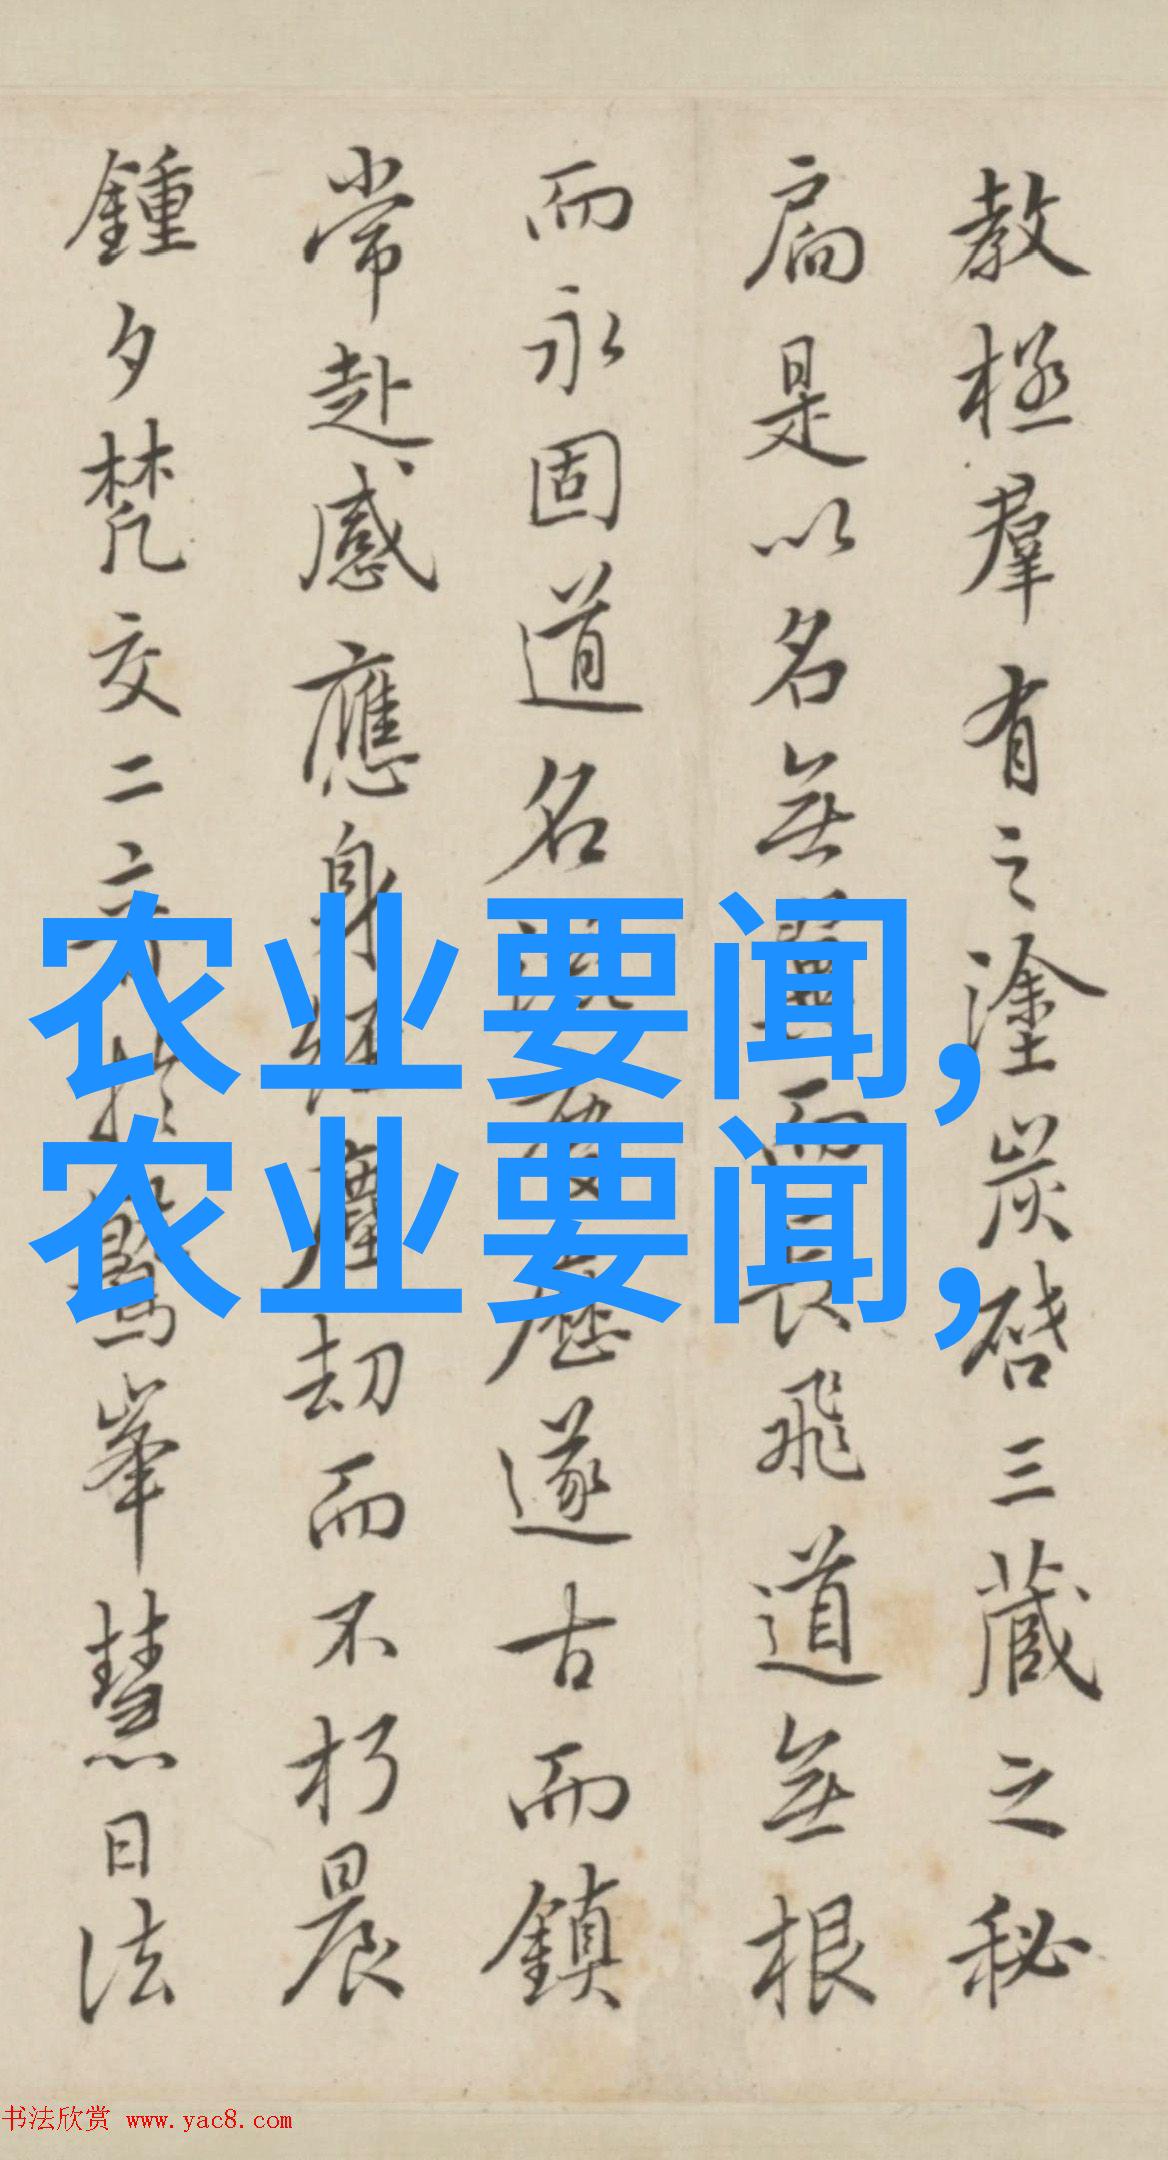 教拯羣有之塗炭啓三藏之秘
扃是以名無翼而長飛道無根
而永固道名流慶歷遂古而鎮
常赴感應身經塵劫而不朽晨
鍾夕梵交二音於鷲峯慧日法
农业要闻,
农业要闻,
书法欣赏 www.yac8.com